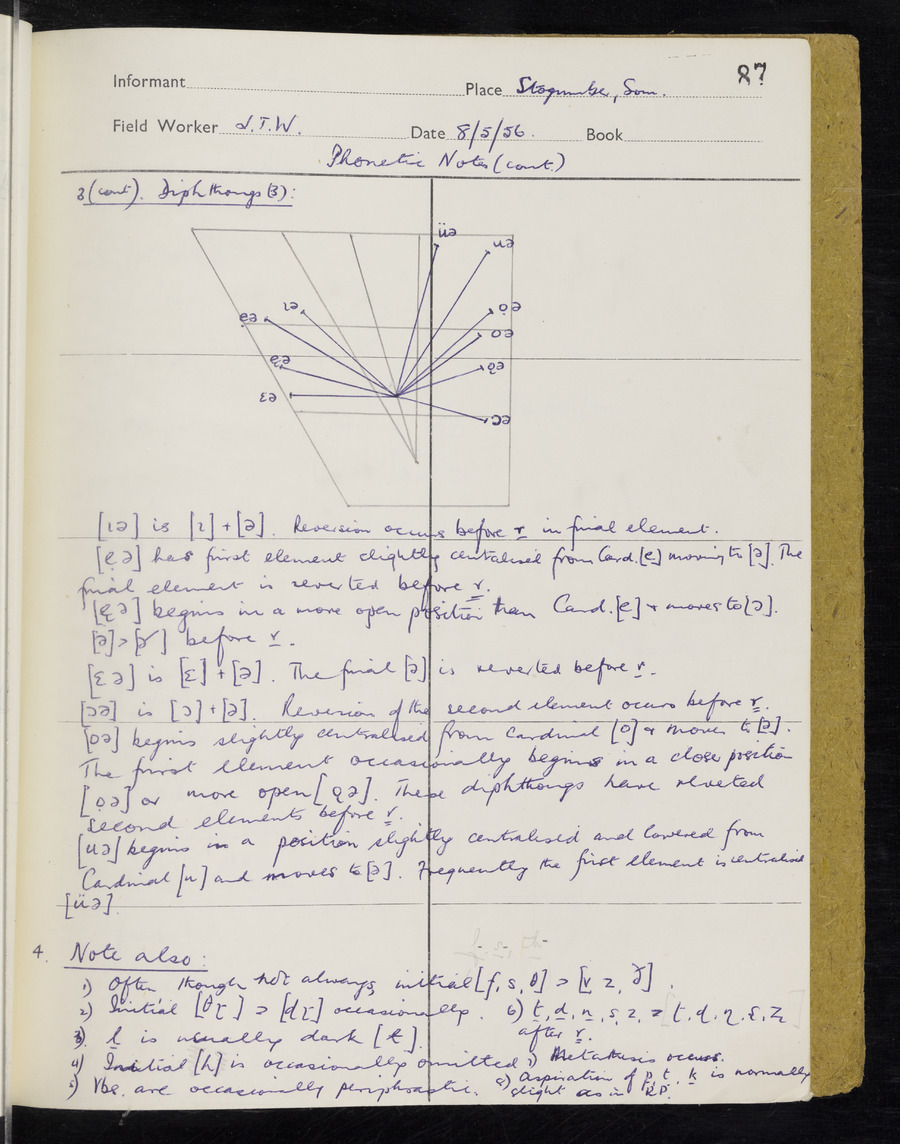 87
Informant Place Stogumber, Som.
Field Worker J.T.W. Date 8/5/56. Book
Phonetic Notes (cont.)
3 (cont). Diphthongs (3):
üə uə
ɩə ọə
ẹə oə
ę̈ə ǫə
ɛə ɔə
[ɩə] is [ɩ] + [ə]. Reversion occurs before r in final element.
[ẹə] has first element slightly centralised from Card. [e] moving to [ə]. The
final element is reverted before r.
[ęə] begins in a more open position than Card. [e] & moves to [ə].
[ə] > [ɚ] before r.
[ɛə] is [ɛ] + [ə]. The final [ə] is reverted before r.
[ɔə] is [ɔ] + [ə]. Reversion of the second element occurs before r.
[oə] begins slightly centralised from Cardinal [o] & moves to [ə].
The first element occasionally begins in a closer position
[ọə] or more open [ǫə]. These diphthongs have reverted
second elements before r.
[uə] begins in a position slightly centralised and lowered from
Cardinal [u] and moves to [ə]. Frequently the first element is centralised
[üə].
4. Note also:
1) Often though not always, initial [f, s, θ] > [v, z, ð].
2) Initial [θr-] > [dr-] occasionally.
3) l is usually dark [ɫ].
4) Initial [h] is occasionally omitted
5) Vbs. are occasionally periphrastic.
6) t, d, n, s, z > ʈ, ɖ, ɳ, ʂ, ʐ
after r.
7) Metathesis occurs.
8) Aspiration of p, t, k is normally
slight as in RP.